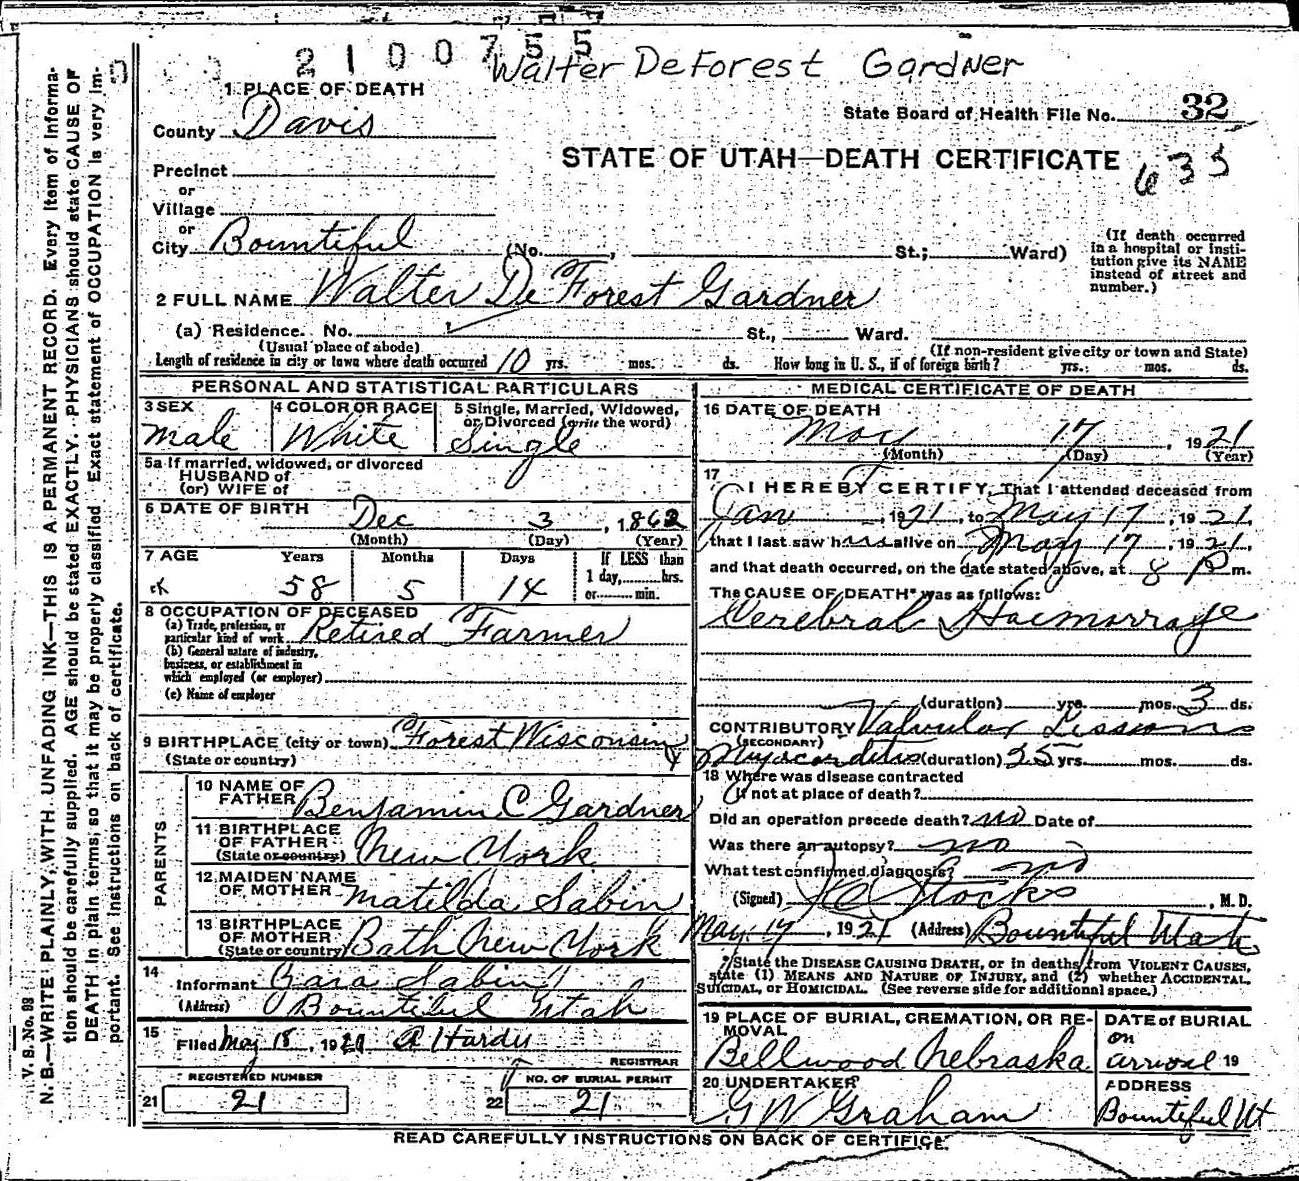 2100755
Walter DeForest Gardner
1 PLACE OF DEATH
County Davis
State Board of Health File No. 32
STATE OF UTAH—DEATH CERTIFICATE 635
Precinct
or
Village
or
City Bountiful (No. , St.; Ward)
(If death occurred
in a hospital or insti-
tution give its NAME
instead of street and
number.)
2 FULL NAME Walter De Forest Gardner
(a) Residence. No. St., Ward.
(Usual place of abode) (If non-resident give city or town and State)
Length of residence in city or town where death occurred 10 yrs. mos. ds. How long in U. S., if of foreign birth? yrs. mos. ds.
PERSONAL AND STATISTICAL PARTICULARS
3 SEX 4 COLOR OR RACE 5 Single, Married, Widowed,
or Divorced (write the word)
Male White Single
5a If married, widowed, or divorced
HUSBAND of
(or) WIFE of
6 DATE OF BIRTH Dec 3, 1862
(Month) (Day) (Year)
7 AGE Years Months Days If LESS than
1 day, hrs.
or min.
58 5 14
8 OCCUPATION OF DECEASED
(a) Trade, profession, or
particular kind of work Retired Farmer
(b) General nature of industry,
business, or establishment in
which employed (or employer)
(c) Name of employer
9 BIRTHPLACE (city or town) Forest Wisconsin
(State or country)
PARENTS
10 NAME OF
FATHER Benjamin C Gardner
11 BIRTHPLACE
OF FATHER
(State or country) New York
12 MAIDEN NAME
OF MOTHER Matilda Sabin
13 BIRTHPLACE
OF MOTHER
(State or country) Bath New York
14 Informant Zara Sabin
(Address) Bountiful Utah
15 Filed May 18, 1921 A Hardy
REGISTRAR
REGISTERED NUMBER NO. OF BURIAL PERMIT
21 21 22 21
MEDICAL CERTIFICATE OF DEATH
16 DATE OF DEATH
May 17, 1921
(Month) (Day) (Year)
17 I HEREBY CERTIFY, That I attended deceased from
Jan, 1921, to May 17, 1921,
that I last saw him alive on May 17, 1921,
and that death occurred, on the date stated above, at 8 P m.
The CAUSE OF DEATH* was as follows:
Cerebral Haemorrage
(duration) yrs. mos. 3 ds.
CONTRIBUTORY Valvular Lissions
(SECONDARY)
Myocarditis (duration) 25 yrs. mos. ds.
18 Where was disease contracted
if not at place of death?
Did an operation precede death? no Date of
Was there an autopsy? no
What test confirmed diagnosis? no
(Signed) Stocks, M. D.
May 17, 1921 (Address) Bountiful Utah
*State the DISEASE CAUSING DEATH, or in deaths from VIOLENT CAUSES,
state (1) MEANS AND NATURE OF INJURY, and (2) whether ACCIDENTAL,
SUICIDAL, or HOMICIDAL. (See reverse side for additional space.)
19 PLACE OF BURIAL, CREMATION, OR RE-
MOVAL
Bellwood Nebraska
DATE of BURIAL
on
arrival 19
20 UNDERTAKER
G W Graham
ADDRESS
Bountiful Ut
READ CAREFULLY INSTRUCTIONS ON BACK OF CERTIFICE.
V. S. No. 98
N. B.—WRITE PLAINLY, WITH UNFADING INK—THIS IS A PERMANENT RECORD. Every item of informa-
tion should be carefully supplied. AGE should be stated EXACTLY. PHYSICIANS should state CAUSE OF
DEATH in plain terms, so that it may be properly classified. Exact statement of OCCUPATION is very im-
portant. See instructions on back of certificate.